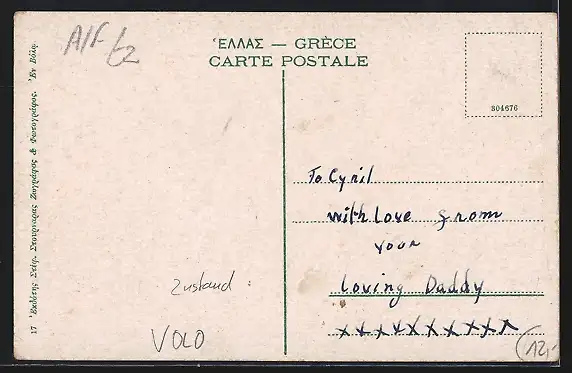 A/F/62
Ἑλλὰς — GRÈCE
CARTE POSTALE
304676
17 Ἐκδότης Στέφ. Στουρνάρας Ζωγράφος & Φωτογράφος. Ἐν Βόλῳ.
To Cyril
with Love from
your
Loving Daddy
xxxxxxxxxx
Zustand
VOLO
12,-